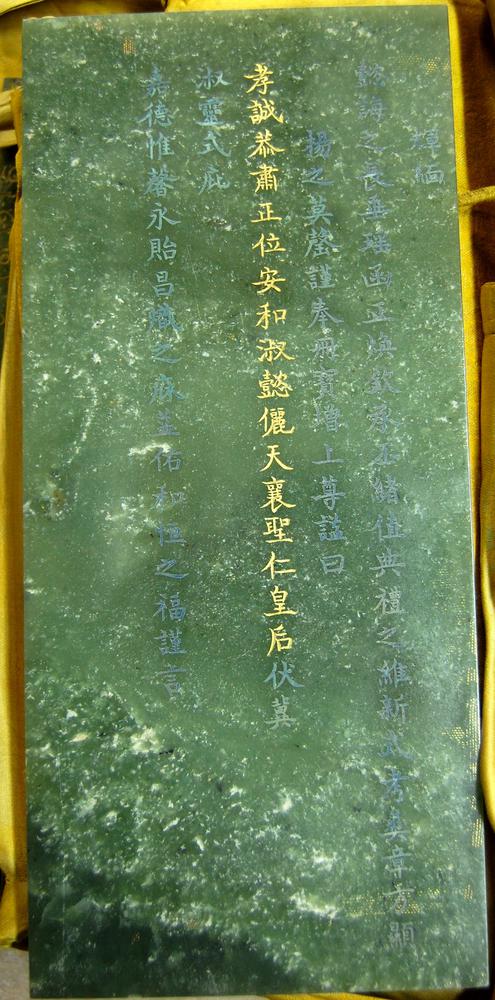 煇恤
懿誨之長垂瑤函正煥欽承丕緒值典禮之維新式考彝章方顯
揚之莫罄謹奉冊寶增上尊謚曰
孝誠恭肅正位安和淑懿儷天襄聖仁皇后伏冀
淑靈式庇
嘉德惟馨永貽昌熾之庥並佑和恒之福謹言